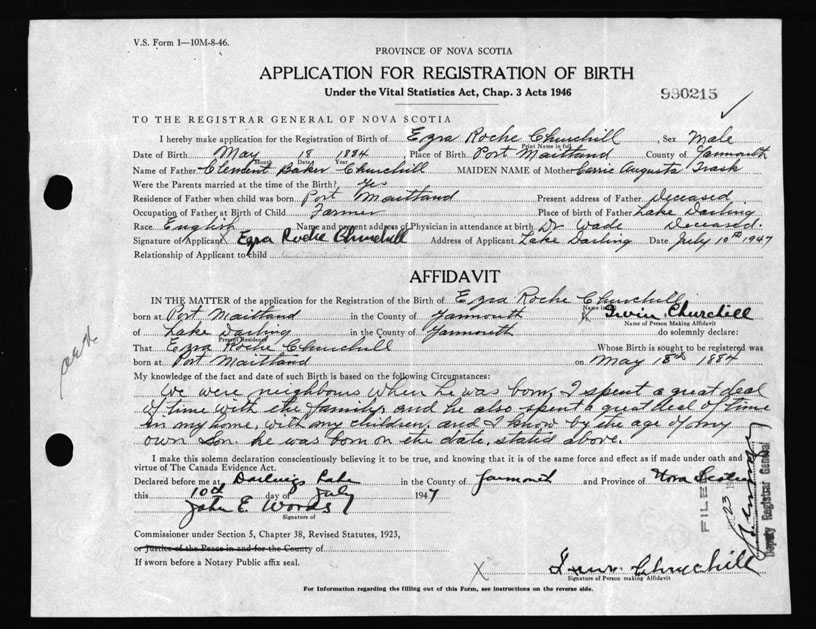 V.S. Form 1—10M-8-46.
PROVINCE OF NOVA SCOTIA
APPLICATION FOR REGISTRATION OF BIRTH
Under the Vital Statistics Act, Chap. 3 Acts 1946
930215
TO THE REGISTRAR GENERAL OF NOVA SCOTIA
I hereby make application for the Registration of Birth of Ezra Roche Churchill, Sex Male
Print Name in full
Date of Birth May 18 1884 Place of Birth Port Maitland County of Yarmouth
Month Date Year
Name of Father Clement Baker Churchill MAIDEN NAME of Mother Carrie Augusta Trask
Were the Parents married at the time of the Birth? Yes
Residence of Father when child was born Port Maitland Present address of Father Deceased
Occupation of Father at Birth of Child Farmer Place of birth of Father Lake Darling
Race English Name and present address of Physician in attendance at birth Dr Wade Deceased.
Signature of Applicant Ezra Roche Churchill Address of Applicant Lake Darling Date July 10th 1947
Relationship of Applicant to child
AFFIDAVIT
IN THE MATTER of the application for the Registration of the Birth of Ezra Roche Churchill
born at Port Maitland in the County of Yarmouth I, Irvin Churchill
Name of Person Making Affidavit
of Lake Darling in the County of Yarmouth do solemnly declare:
Present Residence
That Ezra Roche Churchill Whose Birth is sought to be registered was
born at Port Maitland on May 18th 1884
My knowledge of the fact and date of such Birth is based on the following Circumstances:
We were neighbours when he was born, I spent a great deal
of time with the family, and he also spent a great deal of time
in my home, with my children, and I know by the age of my
own son. he was born on the date, stated above.
I make this solemn declaration conscientiously believing it to be true, and knowing that it is of the same force and effect as if made under oath and by
virtue of The Canada Evidence Act.
Declared before me at Darlings Lake in the County of Yarmouth and Province of Nova Scotia
this 10th day of July 1947
John E. Woods
Signature of
Commissioner under Section 5, Chapter 38, Revised Statutes, 1923,
or Justice of the Peace in and for the County of
If sworn before a Notary Public affix seal.
X Irvin Churchill
Signature of Person making Affidavit
For Information regarding the filling out of this Form, see instructions on the reverse side.
FILED
23
Deputy Registrar General